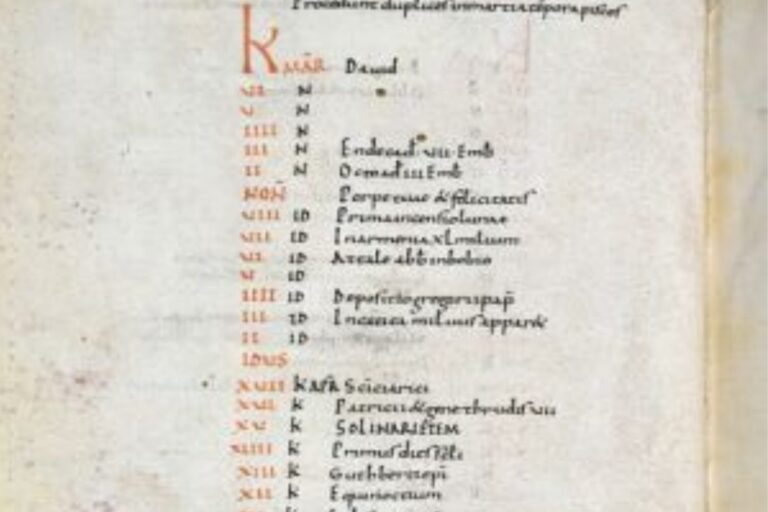 Procedunt duplices in martia tempora pisces
K MAR̄ Dauid
VI N
V N
IIII N
III N Endecad VIII Emb
II N Ocdoad III Emb
NOÑ Perpetuae & felicitatis
VIII ID Prima incensio lunae
VII ID In armenia xl militum
VI ID Atale abb in bobio
V ID
IIII ID Depositio gregorii pap̄
III ID milvus apparet
II ID
IDUS
XVII K APR̄
XVI K Patricii & geretrudis
XV K SOL IN ARIETEM
XIIII K Primus dies
XIII K Guthberti epi
XII K Equinoctium